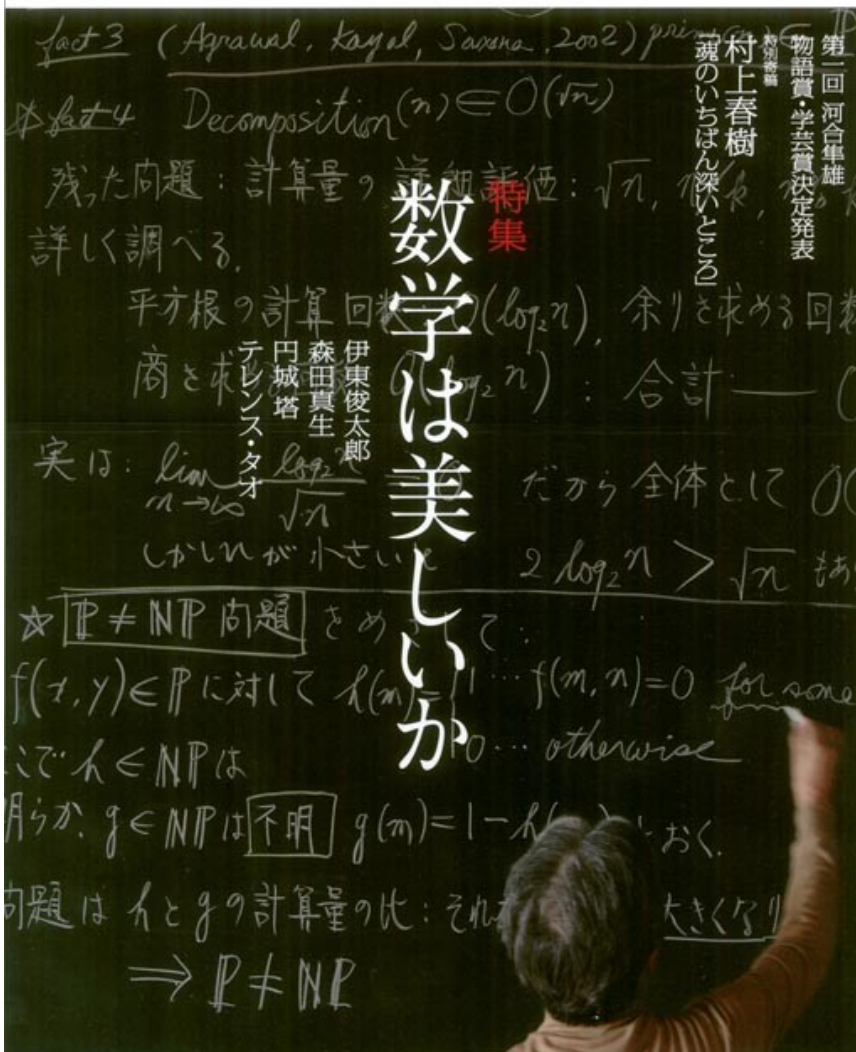 第一回 河合隼雄
物語賞・学芸賞決定発表
特別寄稿
村上春樹
「魂のいちばん深いところ」
特集
数学は美しいか
伊東俊太郎
森田真生
円城塔
テレンス・タオ
fact 3 (Agrawal, Kayal, Saxena, 2002)
☆ fact 4 Decomposition(n) ∈ O(√n)
残った問題：計算量の詳細評価：√n,
詳しく調べる.
平方根の計算回数 O(log₂n), 余りを求める回数
商を求め log₂n) : 合計 —
実は: lim n→∞ log₂n / √n だから全体として O(
しかしnが小さいと 2 log₂n > √n もあ
☆ ℙ ≠ ℕℙ 問題 をめ て:
f(x,y) ∈ ℙ に対して h(m)= 1 … f(m,n)=0 for some
0 … otherwise
こで h ∈ ℕℙ は
明らか. g ∈ ℕℙ は 不明 g(m)=1-h( おく.
問題は h と g の計算量の比: それ 大きくなり
⇒ ℙ ≠ ℕℙ